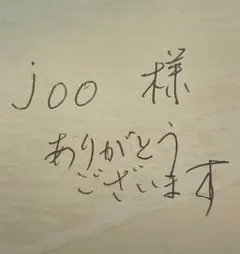 joo 様
ありがとう
ございます